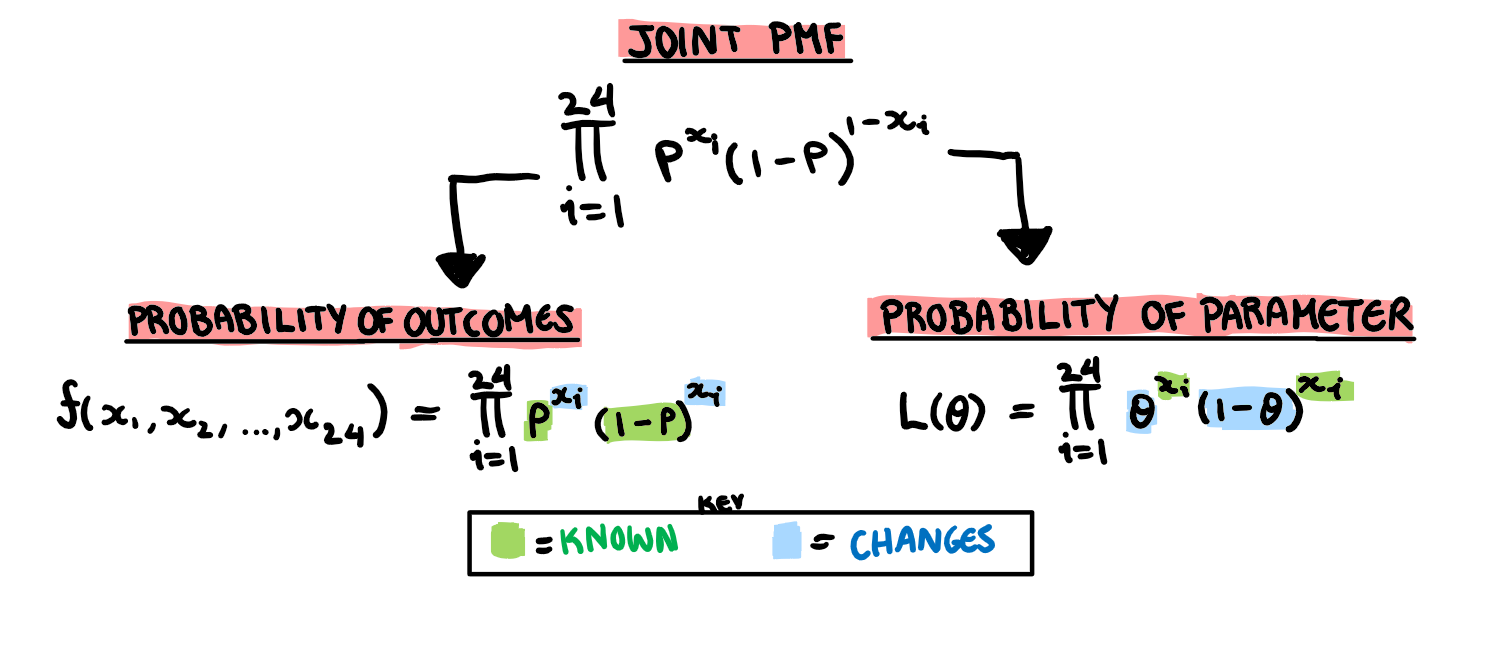 JOINT PMF
24
∏ P^{x_i}(1-P)^{1-x_i}
i=1
PROBABILITY OF OUTCOMES
f(x_1,x_2,...,x_{24}) = ∏_{i=1}^{24} P^{x_i} (1-P)^{x_i}
PROBABILITY OF PARAMETER
L(θ) = ∏_{i=1}^{24} θ^{x_i} (1-θ)^{x_i}
KEY
= KNOWN
= CHANGES